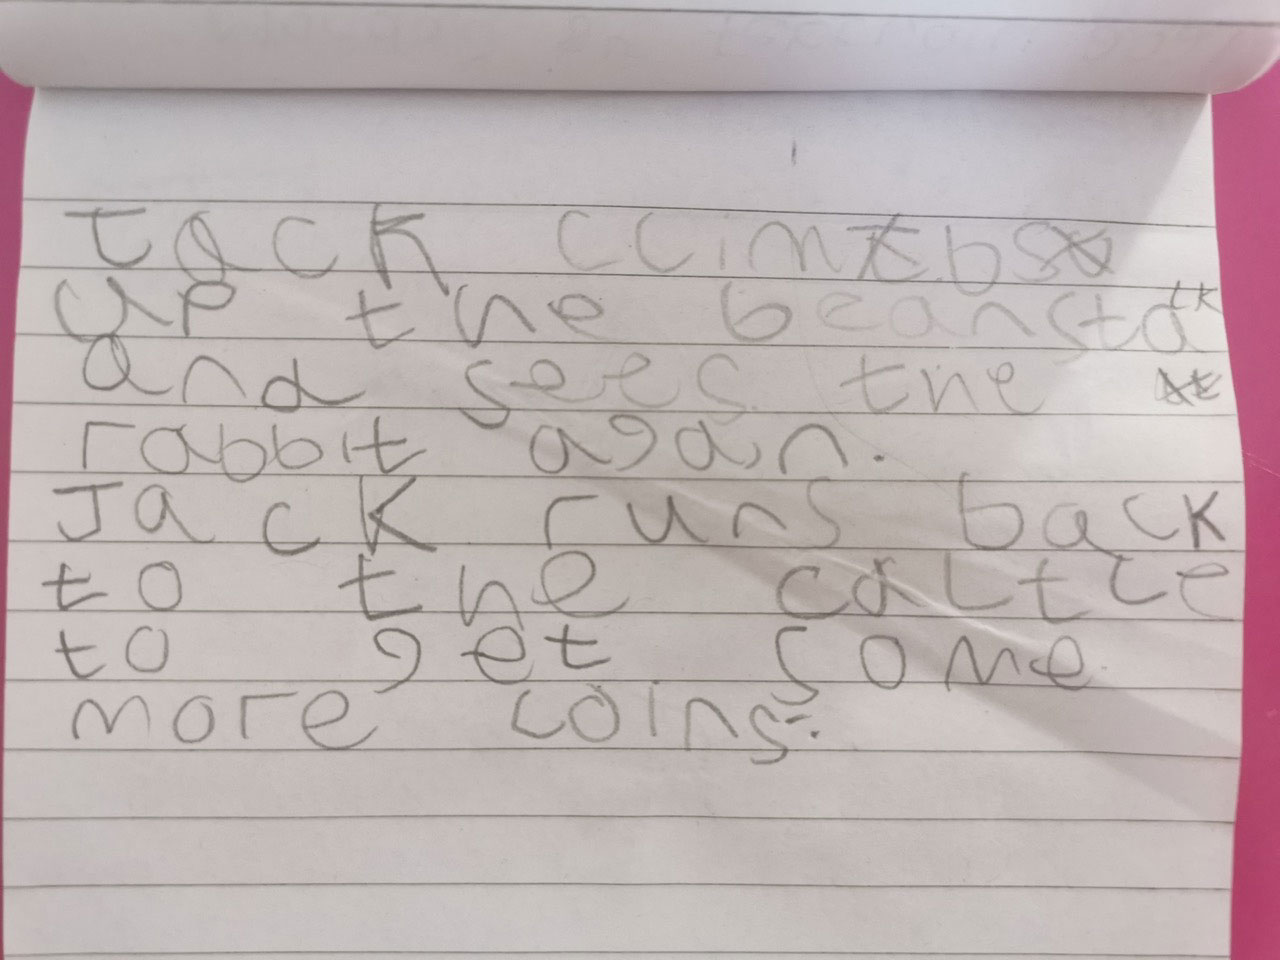 Jack climbs
up the beanstalk
and sees the
rabbit again.
Jack runs back
to the caltle
to get some
more coins.